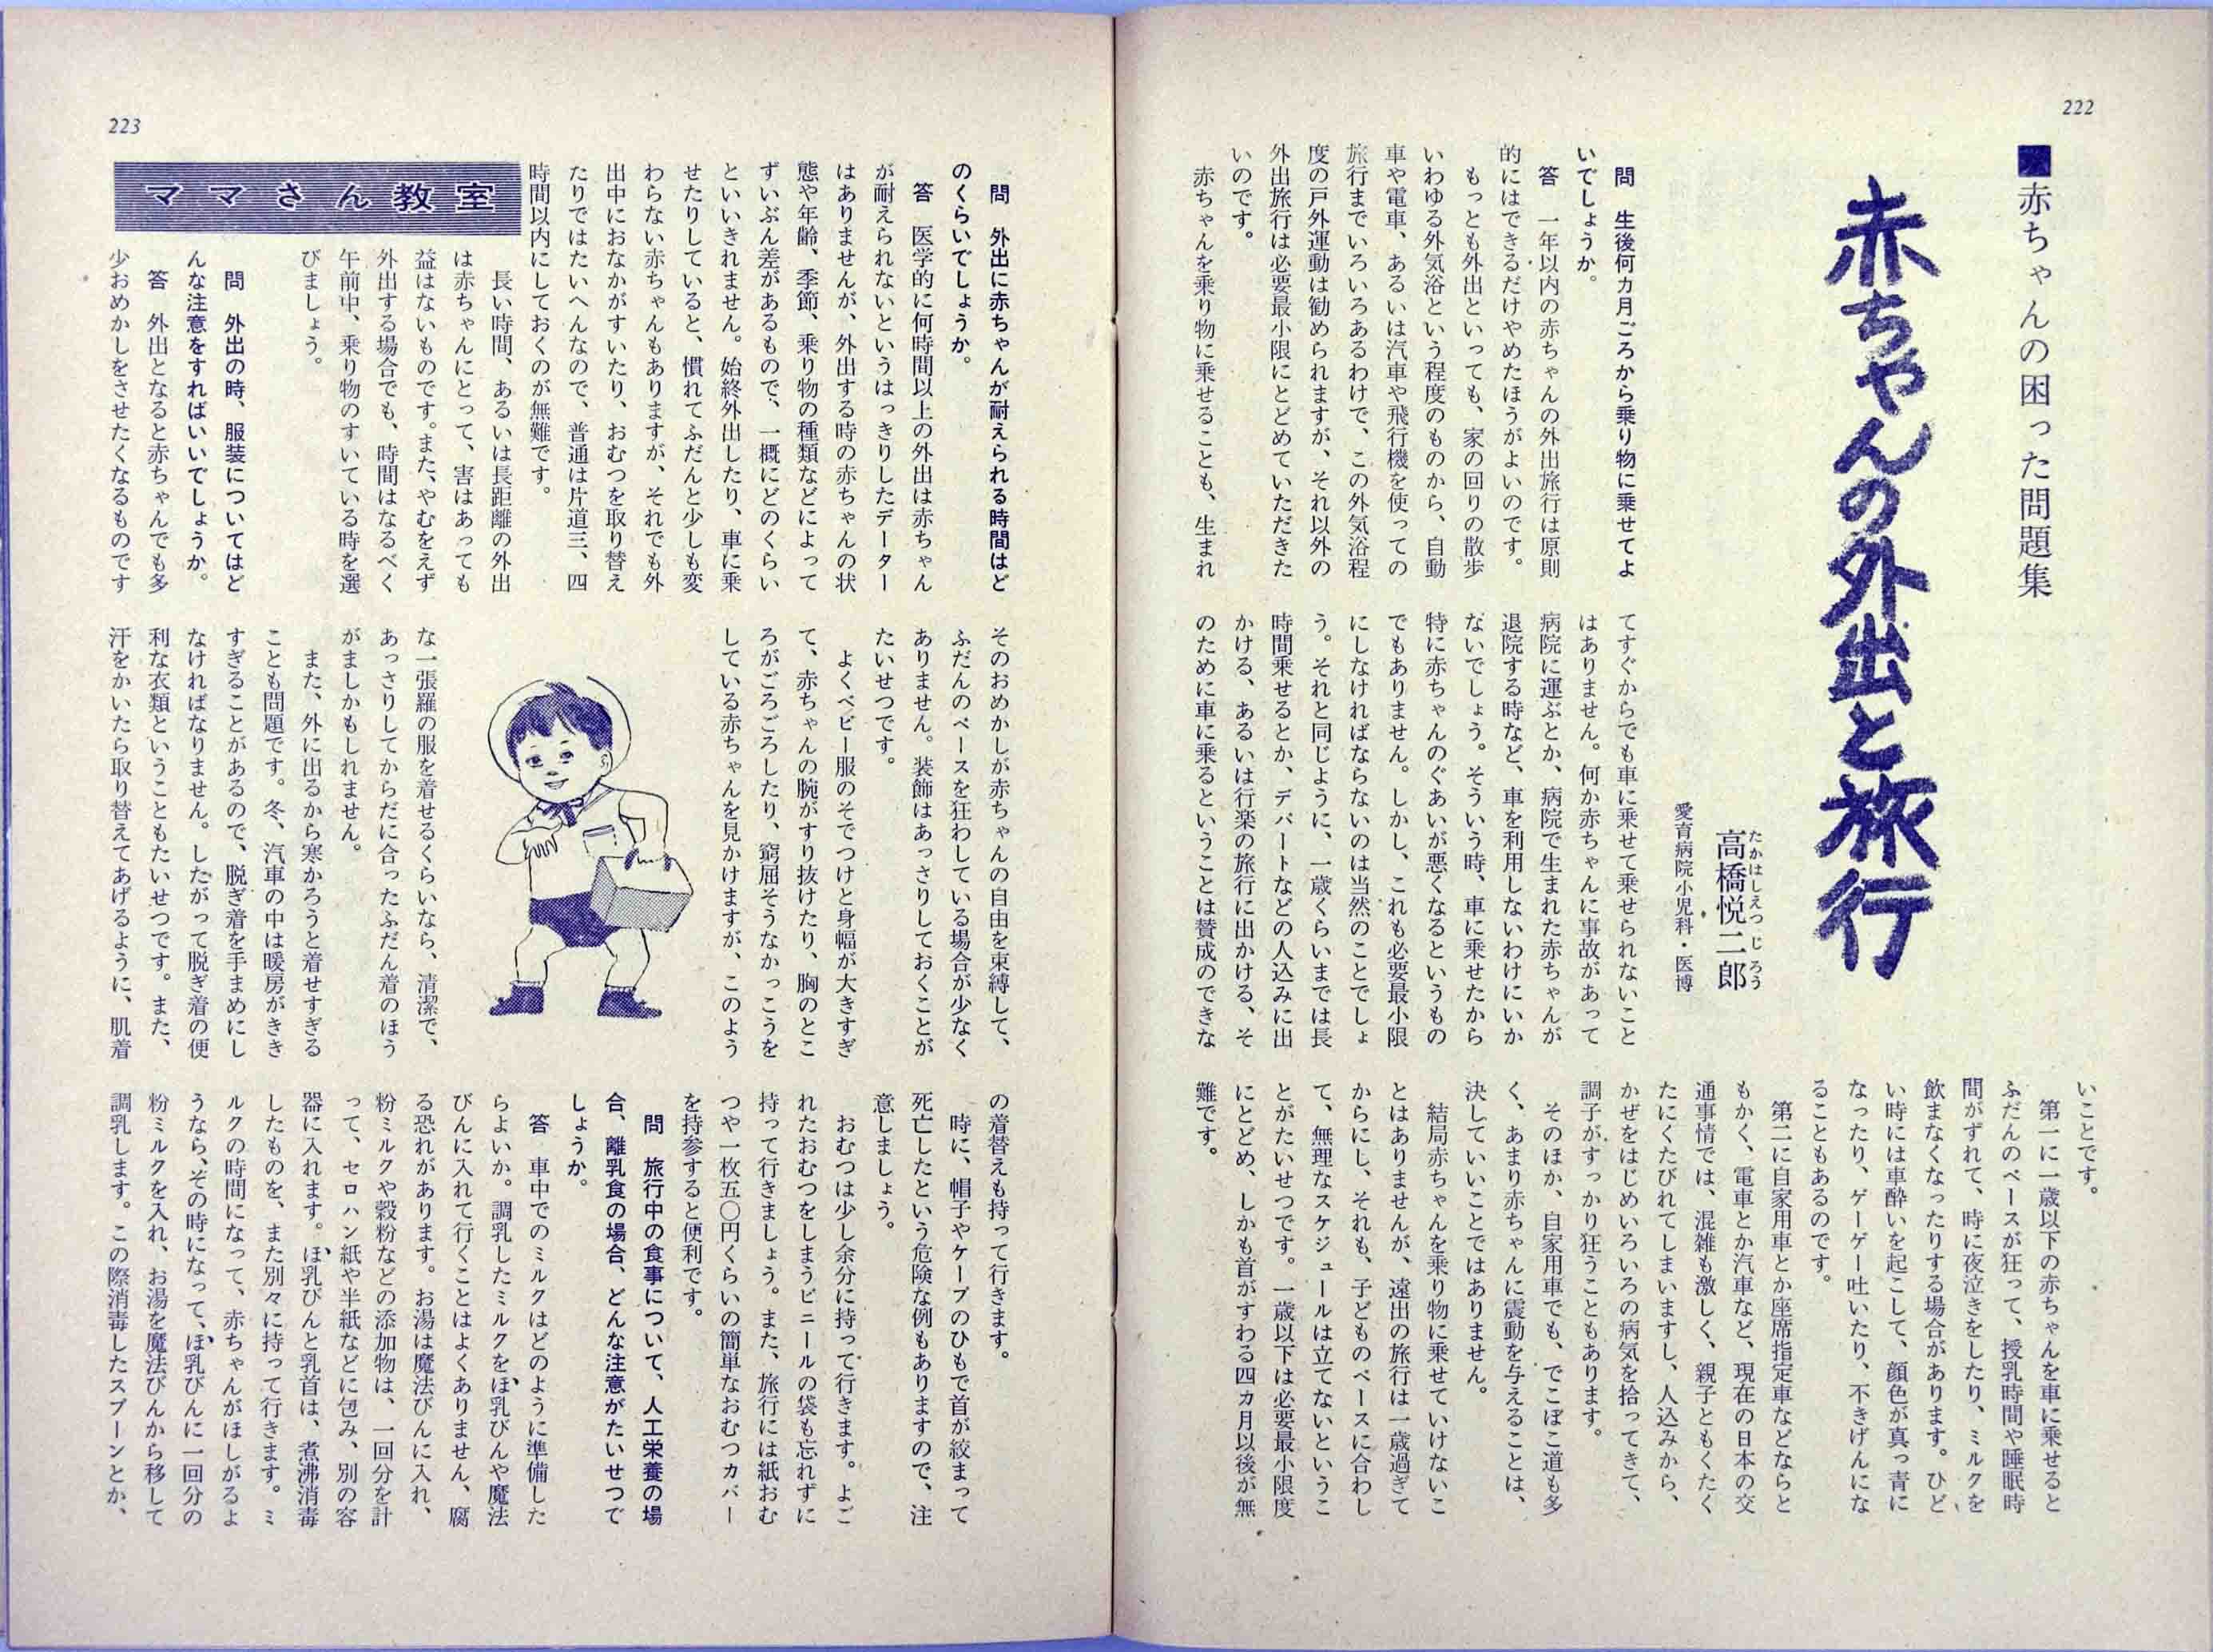 222
■赤ちゃんの困った問題集
赤ちゃんの外出と旅行
たかはしえつじろう
高橋悦二郎
愛育病院小児科・医博
問　生後何カ月ごろから乗り物に乗せてよ
いでしょうか。
答　一年以内の赤ちゃんの外出旅行は原則
的にはできるだけやめたほうがよいのです。
もっとも外出といっても、家の回りの散歩
いわゆる外気浴という程度のものから、自動
車や電車、あるいは汽車や飛行機を使っての
旅行までいろいろあるわけで、この外気浴程
度の戸外運動は勧められますが、それ以外の
外出旅行は必要最小限にとどめていただきた
いのです。
赤ちゃんを乗り物に乗せることも、生まれ
てすぐからでも車に乗せて乗せられないこと
はありません。何か赤ちゃんに事故があって
病院に運ぶとか、病院で生まれた赤ちゃんが
退院する時など、車を利用しないわけにいか
ないでしょう。そういう時、車に乗せたから
特に赤ちゃんのぐあいが悪くなるというもの
でもありません。しかし、これも必要最小限
にしなければならないのは当然のことでしょ
う。それと同じように、一歳くらいまでは長
時間乗せるとか、デパートなどの人込みに出
かける、あるいは行楽の旅行に出かける、そ
のために車に乗るということは賛成のできな
いことです。
第一に一歳以下の赤ちゃんを車に乗せると
ふだんのペースが狂って、授乳時間や睡眠時
間がずれて、時に夜泣きをしたり、ミルクを
飲まなくなったりする場合があります。ひど
い時には車酔いを起こして、顔色が真っ青に
なったり、ゲーゲー吐いたり、不きげんにな
ることもあるのです。
第二に自家用車とか座席指定車などならと
もかく、電車とか汽車など、現在の日本の交
通事情では、混雑も激しく、親子ともくたく
たにくたびれてしまいますし、人込みから、
かぜをはじめいろいろの病気を拾ってきて、
調子がすっかり狂うこともあります。
そのほか、自家用車でも、でこぼこ道も多
く、あまり赤ちゃんに震動を与えることは、
決していいことではありません。
結局赤ちゃんを乗り物に乗せていけないこ
とはありませんが、遠出の旅行は一歳過ぎて
からにし、それも、子どものペースに合わし
て、無理なスケジュールは立てないというこ
とがたいせつです。一歳以下は必要最小限度
にとどめ、しかも首がすわる四カ月以後が無
難です。
223
ママさん教室
問　外出に赤ちゃんが耐えられる時間はど
のくらいでしょうか。
答　医学的に何時間以上の外出は赤ちゃん
が耐えられないというはっきりしたデーター
はありませんが、外出する時の赤ちゃんの状
態や年齢、季節、乗り物の種類などによって
ずいぶん差があるもので、一概にどのくらい
といいきれません。始終外出したり、車に乗
せたりしていると、慣れてふだんと少しも変
わらない赤ちゃんもありますが、それでも外
出中におなかがすいたり、おむつを取り替え
たりではたいへんなので、普通は片道三、四
時間以内にしておくのが無難です。
長い時間、あるいは長距離の外出
は赤ちゃんにとって、害はあっても
益はないものです。また、やむをえず
外出する場合でも、時間はなるべく
午前中、乗り物のすいている時を選
びましょう。
問　外出の時、服装についてはど
んな注意をすればいいでしょうか。
答　外出となると赤ちゃんでも多
少おめかしをさせたくなるものです
そのおめかしが赤ちゃんの自由を束縛して、
ふだんのペースを狂わしている場合が少なく
ありません。装飾はあっさりしておくことが
たいせつです。
よくベビー服のそでつけと身幅が大きすぎ
て、赤ちゃんの腕がすり抜けたり、胸のとこ
ろがごろごろしたり、窮屈そうなかっこうを
している赤ちゃんを見かけますが、このよう
な一張羅の服を着せるくらいなら、清潔で、
あっさりしてからだに合ったふだん着のほう
がましかもしれません。
また、外に出るから寒かろうと着せすぎる
ことも問題です。冬、汽車の中は暖房がきき
すぎることがあるので、脱ぎ着を手まめにし
なければなりません。したがって脱ぎ着の便
利な衣類ということもたいせつです。また、
汗をかいたら取り替えてあげるように、肌着
の着替えも持って行きます。
時に、帽子やケープのひもで首が絞まって
死亡したという危険な例もありますので、注
意しましょう。
おむつは少し余分に持って行きます。よご
れたおむつをしまうビニールの袋も忘れずに
持って行きましょう。また、旅行には紙おむ
つや一枚五〇円くらいの簡単なおむつカバー
を持参すると便利です。
問　旅行中の食事について、人工栄養の場
合、離乳食の場合、どんな注意がたいせつで
しょうか。
答　車中でのミルクはどのように準備した
らよいか。調乳したミルクをほ乳びんや魔法
びんに入れて行くことはよくありません、腐
る恐れがあります。お湯は魔法びんに入れ、
粉ミルクや穀粉などの添加物は、一回分を計
って、セロハン紙や半紙などに包み、別の容
器に入れます。ほ乳びんと乳首は、煮沸消毒
したものを、また別々に持って行きます。ミ
ルクの時間になって、赤ちゃんがほしがるよ
うなら、その時になって、ほ乳びんに一回分の
粉ミルクを入れ、お湯を魔法びんから移して
調乳します。この際消毒したスプーンとか、